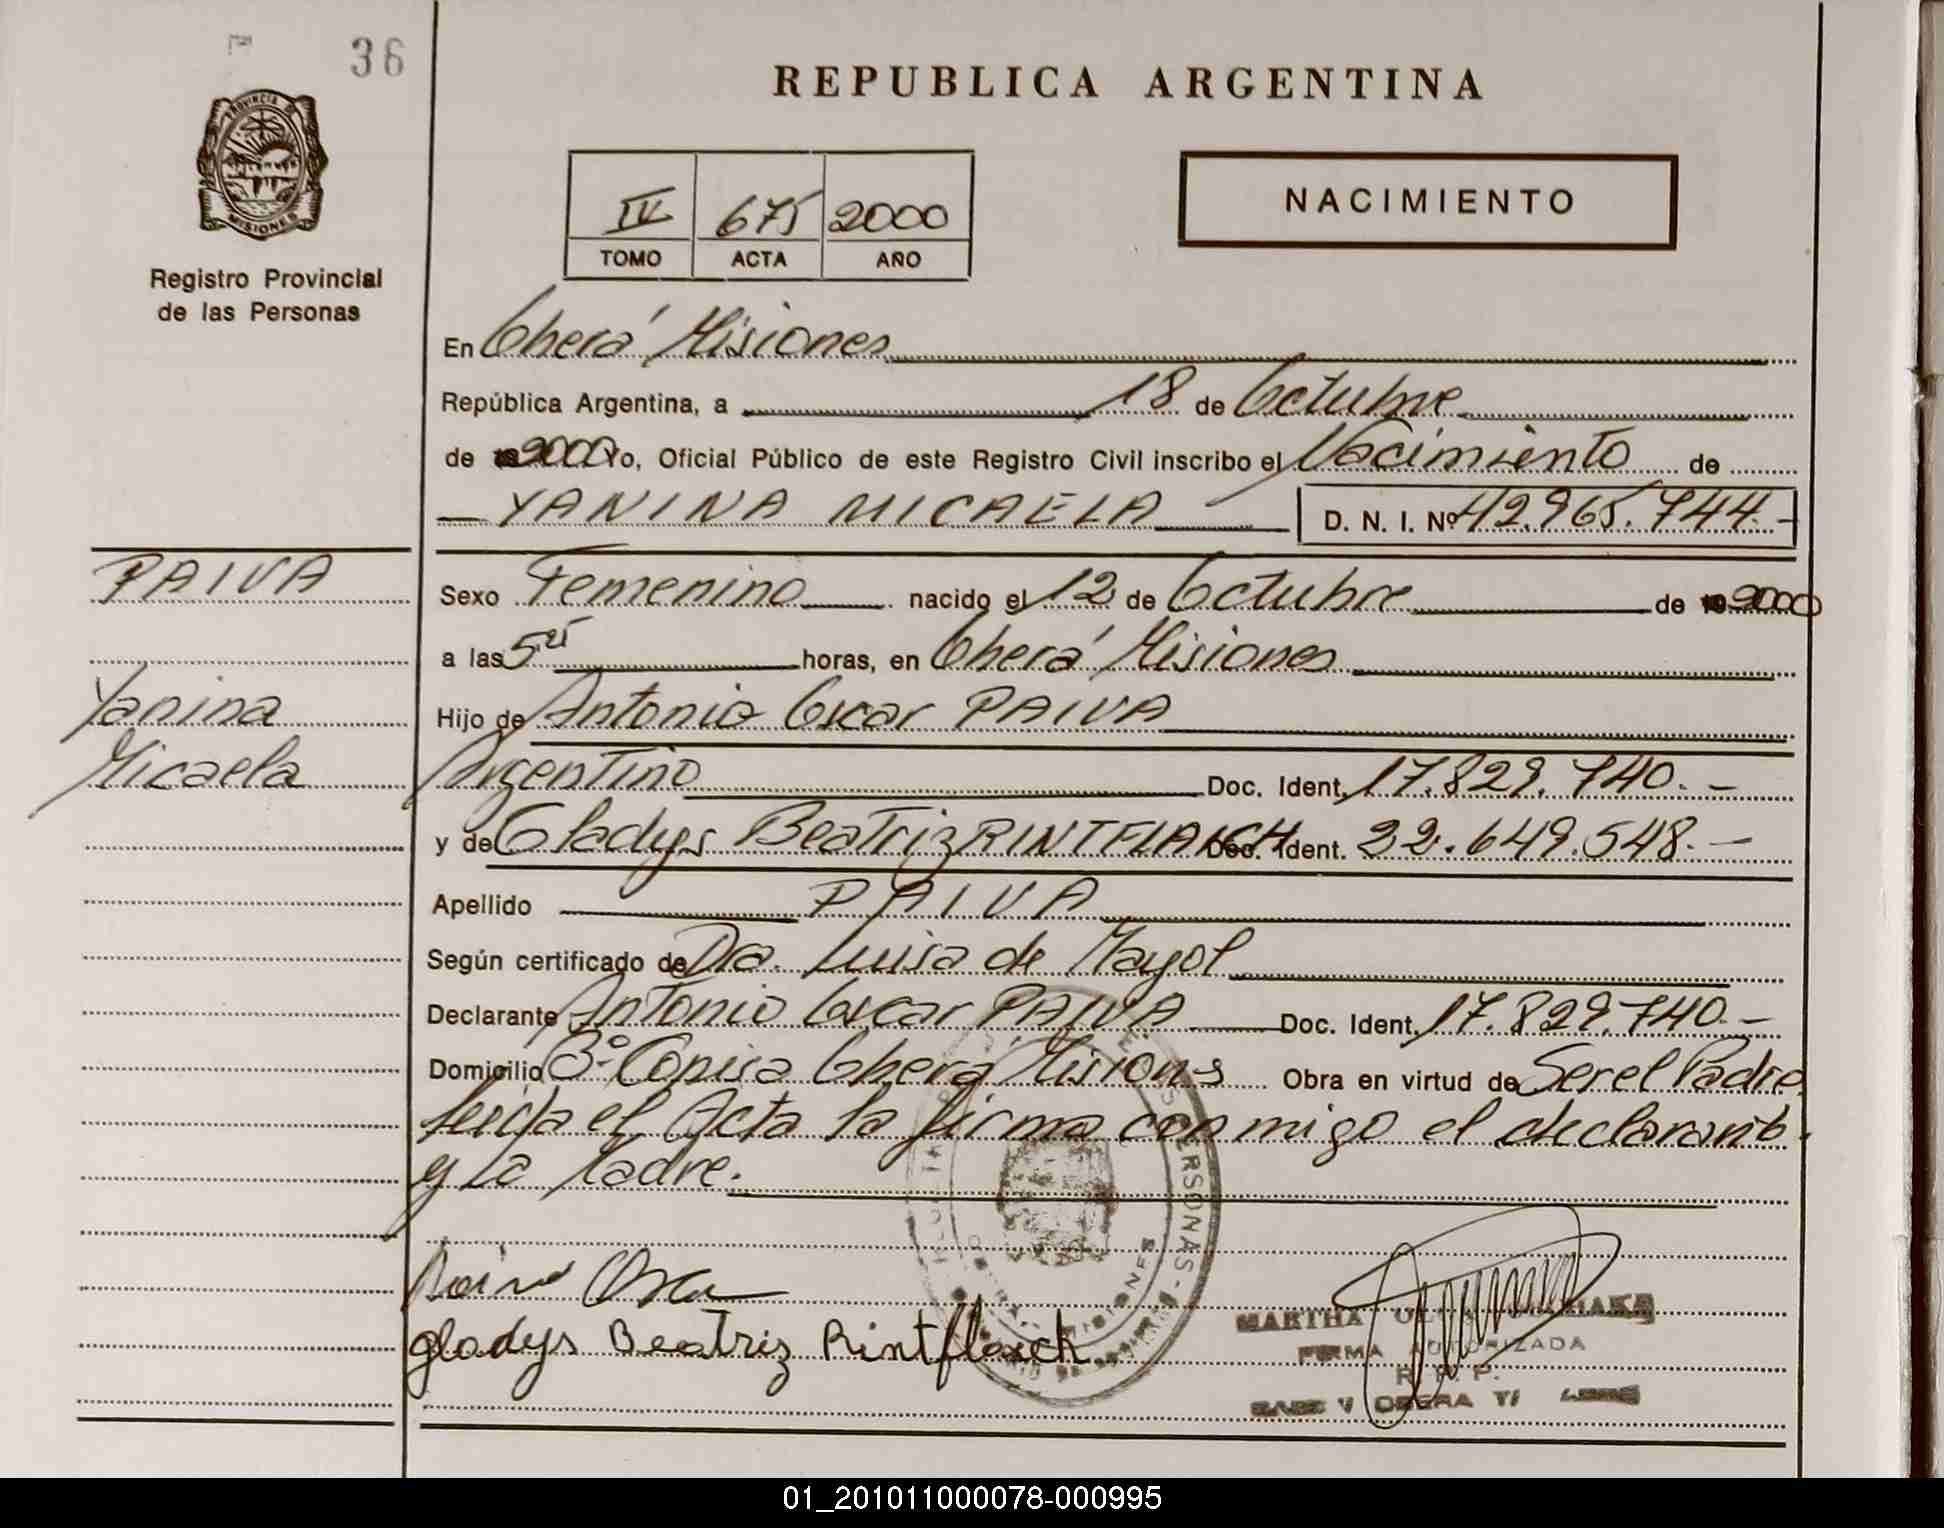 36
REPUBLICA ARGENTINA
PROVINCIA DE
MISIONES
Registro Provincial
de las Personas
IV 675 2000
TOMO ACTA AÑO
NACIMIENTO
En Oberá Misiones
República Argentina, a 18 de Octubre
de 2000 Yo, Oficial Público de este Registro Civil inscribo el Nacimiento de
YANINA MICAELA D. N. I. Nº 42.965.744.-
PAIVA
Yanina
Micaela
Sexo Femenino nacido el 12 de Octubre de 2000
a las 5 horas, en Oberá Misiones
Hijo de Antonio Oscar PAIVA
Argentino Doc. Ident. 17.829.740.-
y de Gladys Beatriz RINTFLAISCH Doc. Ident. 22.649.548.-
Apellido PAIVA
Según certificado de Dra. Luisa de Mayol
Declarante Antonio Oscar PAIVA Doc. Ident. 17.829.740.-
Domicilio Bº Copisa Oberá Misiones Obra en virtud de Ser el Padre
leida el Acta la firma conmigo el declarante
y La Madre.
gladys Beatriz Rintflaisch
MARTHA
FIRMA AUTORIZADA
R. P. P.
OBERA
01_201011000078-000995